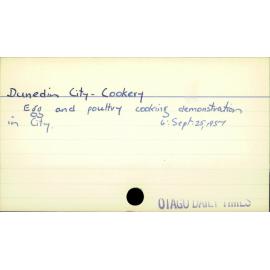 Dunedin City - Cookery
Egg and poultry cooking demonstration
in City. 6: Sept. 25, 1957
OTAGO DAILY TIMES